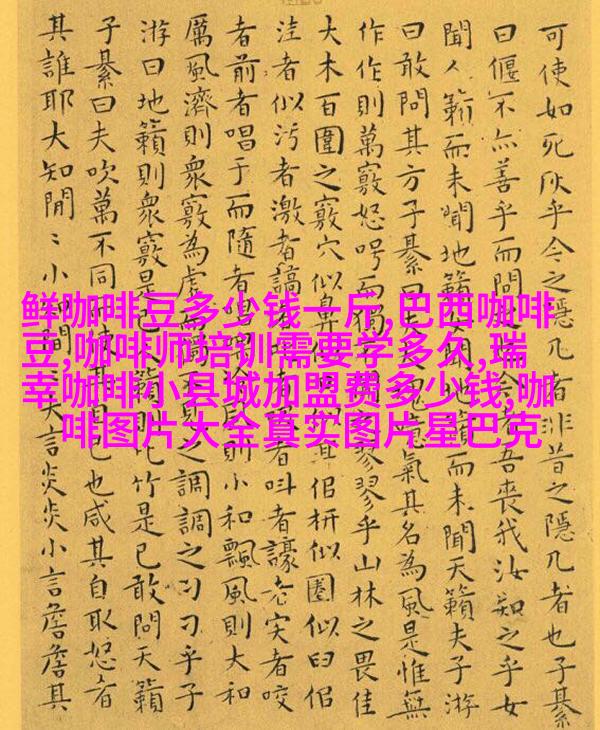 可使如死灰乎今之隱几者非昔之隱几者也子綦
曰偃不亦善乎而問者吾喪我汝知之乎女
聞人籟而未聞地籟而未聞天籟夫子游
曰敢問其方子綦曰氣其名為風是惟無
作作則萬竅怒呺而獨翏翏乎山林之畏佳
大木百圍之竅穴似鼻佀枅似圈似臼佀
洼者似污者激者謞者叫者譹者宎者咬
者前者唱于而隨者則小和飄風則大和
厲風濟則衆竅為虛之調調之刁刁乎子
游曰地籟則衆竅是比竹是已敢問天籟
子綦曰夫吹萬不同己也咸其自取怒者
其誰耶大知閒〻小大言炎炎小言詹詹其
鲜咖啡豆多少钱一斤,巴西咖啡
豆,咖啡师培训需要学多久,瑞
幸咖啡小县城加盟费多少钱,咖
啡图片大全真实图片星巴克